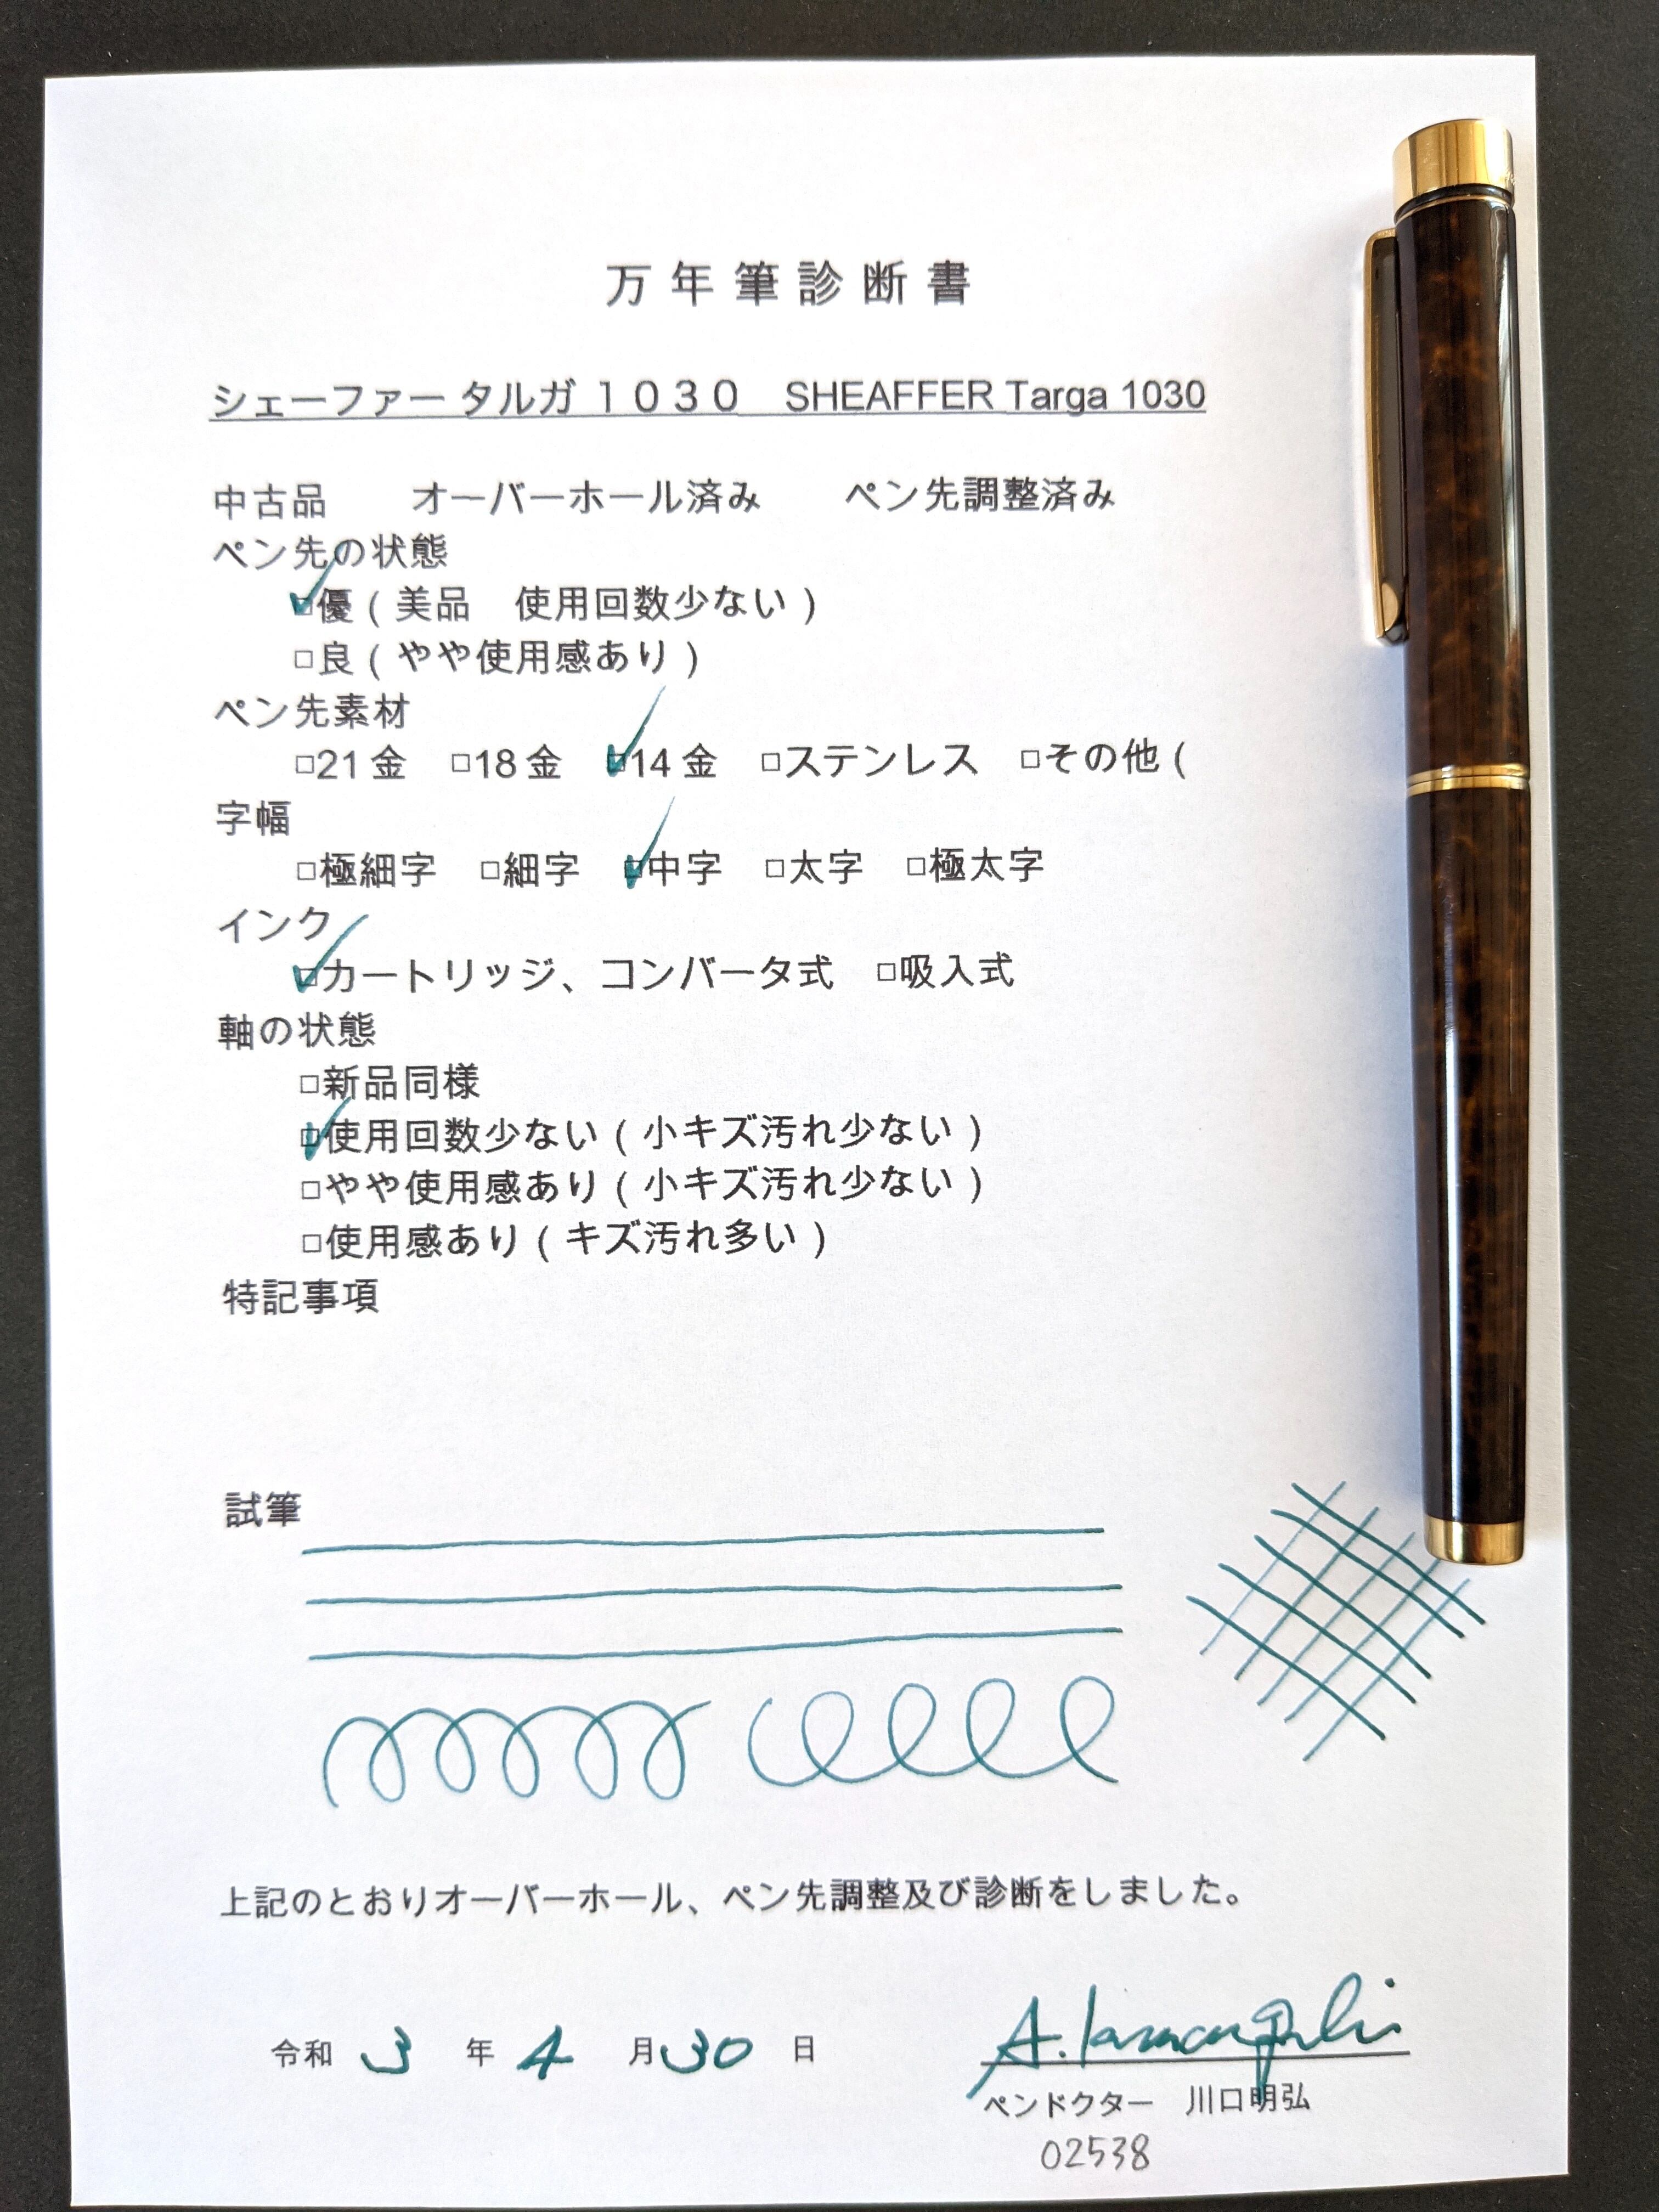 万年筆診断書
シェーファー タルガ １０３０　SHEAFFER Targa 1030
中古品　オーバーホール済み　ペン先調整済み
ペン先の状態
☑優（美品　使用回数少ない）
□良（やや使用感あり）
ペン先素材
□21金　□18金　☑14金　□ステンレス　□その他（
字幅
□極細字　□細字　☑中字　□太字　□極太字
インク
☑カートリッジ、コンバータ式　□吸入式
軸の状態
□新品同様
☑使用回数少ない（小キズ汚れ少ない）
□やや使用感あり（小キズ汚れ少ない）
□使用感あり（キズ汚れ多い）
特記事項
試筆
上記のとおりオーバーホール、ペン先調整及び診断をしました。
令和 3 年 4 月 30 日
A. Kawaguchi
ペンドクター　川口明弘
02538